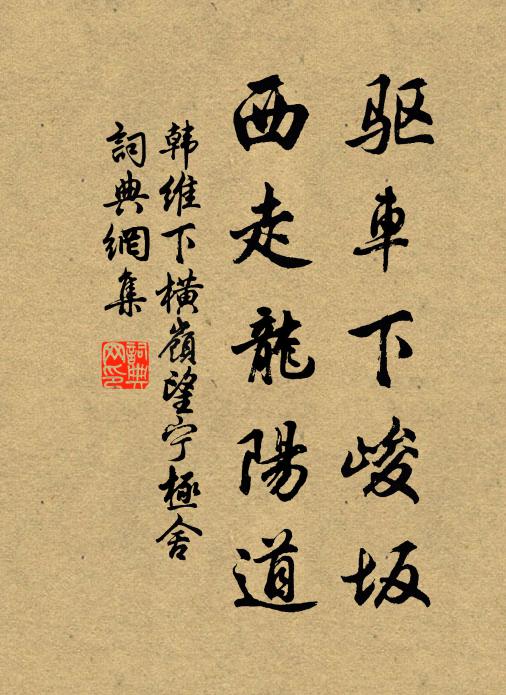 驱車下峻坂
西走龍陽道
韩维下横嶺望宁極舍
詞典網集
詞典
网印